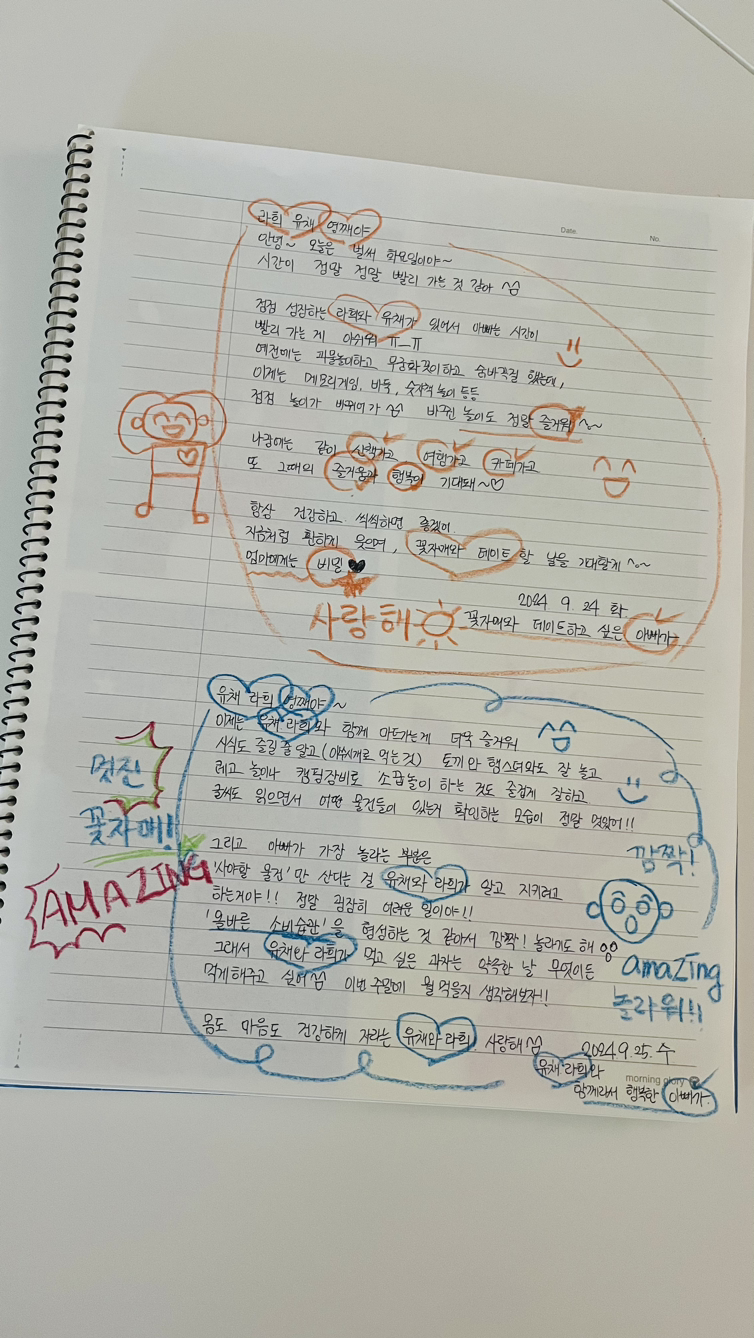 Date.
No.
라희 유채 영째야
안녕~ 오늘은 벌써 화요일이야~
시간이 정말 정말 빨리 가는 것 같아 ^^
점점 성장하는 라희와 유채가 있어서 아빠는 시간이
빨리 가는 게 아쉬워 ㅠ_ㅠ
예전에는 괴물놀이하고 무궁화꽃이하고 숨바꼭질 했는데,
이제는 메모리게임, 바둑, 숫자적 놀이 등등
점점 놀이가 바뀌어가 ^^ 바뀐 놀이도 정말 즐거워 ^~
나중에는 같이 산책가고 여행가고 카페가고
또 그때의 즐거움과 행복이 기대돼~♡
항상 건강하고 씩씩하면 좋겠어
지금처럼 환하게 웃으며, 꽃자매와 데이트 할 날을 기대할게 ^~
엄마에게는 비밀 ♥
2024 9. 24 화
사랑해
꽃자매와 데이트하고 싶은 아빠가
유채 라희 영째야~
이제는 유채 라희와 함께 마트가는게 더욱 즐거워
시식도 즐길 줄 알고 (이쑤시개로 먹는 것) 토끼와 햄스터와도 잘 놀고
레고 놀이나 캠핑장비로 소꿉놀이 하는 것도 즐겁게 잘하고
글씨도 읽으면서 어떤 물건들이 있는지 확인하는 모습이 정말 멋있어!!
멋진
꽃자매!
AMAZING
그리고 아빠가 가장 놀라는 부분은
'사야할 물건'만 산다는 걸 유채와 라희가 알고 지키려고
하는거야!! 정말 굉장히 어려운 일이야!!
'올바른 소비습관'을 형성하는 것 같아서 깜짝! 놀라기도 해
그래서 유채와 라희가 먹고 싶은 과자는 약속한 날 무엇이든
먹게 해주고 싶어 ^^ 이번 주말에 뭘 먹을지 생각해보자!!
깜짝!
amazing
놀라워!!
몸도 마음도 건강하게 자라는 유채와 라희 사랑해 ^^
2024. 9. 25. 수
유채 라희와
morning glory
함께라서 행복한 아빠가